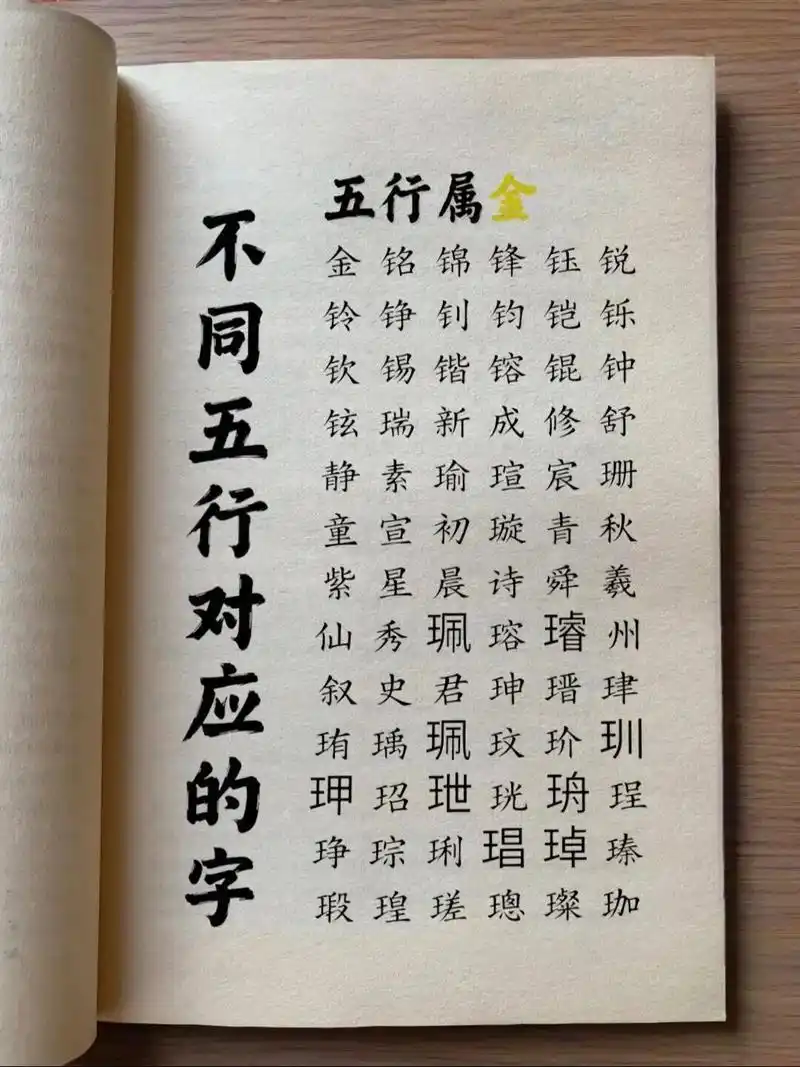 不同五行对应的字
五行属金
金 铭 锦 锋 钰 锐
铃 铮 钊 钧 铠 铄
钦 锡 锴 镕 锟 钟
铉 瑞 新 成 修 舒
静 素 瑜 瑄 宸 珊
童 宣 初 璇 青 秋
紫 星 晨 诗 舜 羲
仙 秀 珮 瑢 璿 州
叙 史 君 珅 瑨 珒
珛 瑀 珮 玟 玠 玔
玾 玿 玴 珖 珘 珵
琤 琮 琍 琩 琸 瑧
瑕 瑝 瑳 璁 璨 珈